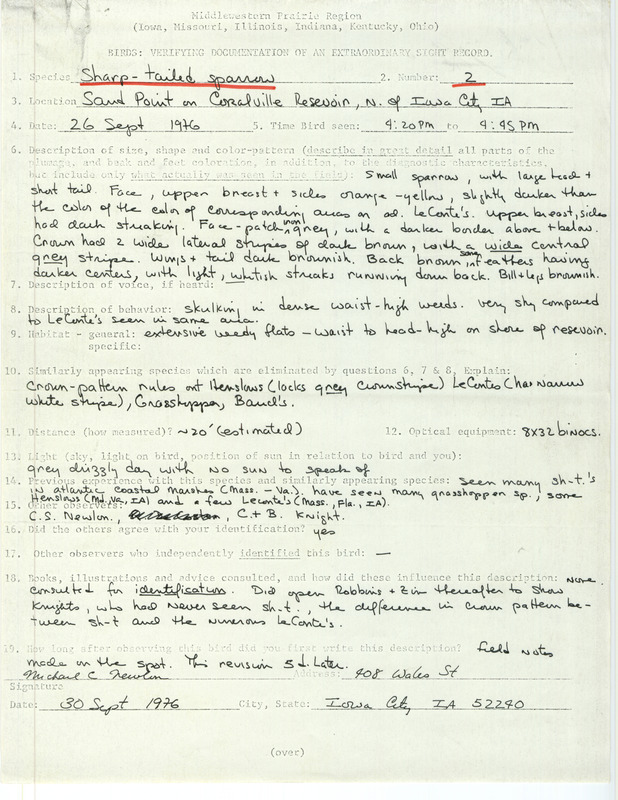 Middlewestern Prairie Region
(Iowa, Missouri, Illinois, Indiana, Kentucky, Ohio)
BIRDS: VERIFYING DOCUMENTATION OF AN EXTRAORDINARY SIGHT RECORD.
1. Species Sharp-tailed sparrow 2. Number: 2
3. Location Sand Point on Coralville Resevoir, N. of Iowa City IA
4. Date: 26 Sept 1976 5. Time Bird seen: 4:20 PM to 4:45 PM
6. Description of size, shape and color-pattern (describe in great detail all parts of the
plumage, and beak and feet coloration, in addition, to the diagnostic characteristics,
but include only what actually was seen in the field): Small sparrow, with large head +
short tail. Face, upper breast + sides orange-yellow, slightly darker than
the color of the color of corresponding areas on ad. LeConte's. Upper breast, sides
had dark streaking. Face-patch iron grey, with a darker border above + below.
Crown had 2 wide lateral stripes of dark brown, with a wide central
grey stripe. Wings + tail dark brownish. Back brown, some feathers having
darker centers, with light, whitish streaks running down back. Bill + legs brownish.
7. Description of voice, if heard:
8. Description of behavior: skulking in dense waist-high weeds. Very shy compared
to LeConte's seen in same area.
9. Habitat - general: extensive weedy flats - waist to head-high on shore of resevoir.
specific:
10. Similarly appearing species which are eliminated by questions 6, 7 & 8, Explain:
Crown-pattern rules out Henslows (lacks grey crownstripe) LeContes (has narrow
white stripe), Grasshopper, Baird's.
11. Distance (how measured)? ~20' (estimated) 12. Optical equipment: 8x32 binocs.
13. Light (sky, light on bird, position of sun in relation to bird and you):
grey drizzly day with no sun to speak of
14. Previous experience with this species and similarly appearing species: seen many sh-t.'s
in atlantic coastal marshes (Mass. - Va.). have seen many grasshopper sp., some
Henslows (Md, Va, IA) and a few LeConte's (Mass., Fla., IA).
15. Other observers:
C.S. Newlon, C. + B. Knight.
16. Did the others agree with your identification? yes
17. Other observers who independently identified this bird: —
18. Books, illustrations and advice consulted, and how did these influence this description: none
consulted for identification. Did open Robbins + Zim thereafter to show
Knights, who had never seen sh-t., the difference in crown pattern be-
tween sh-t and the numerous LeConte's.
19. How long after observing this bird did you first write this description? field notes
made on the spot. This revision 5 d. later.
Michael C. Newlon Address: 408 Wales St
Signature
Date: 30 Sept 1976 City, State: Iowa City IA 52240
(over)